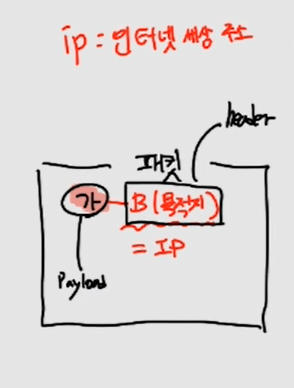 ip : 인터넷 세상 주소
header
패킷
가
B (목적지)
= IP
Payload